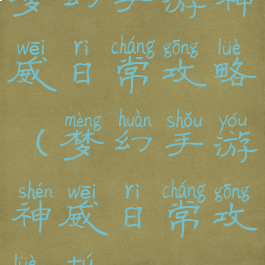 梦幻手游神
wēi rì cháng gōng lüè
威日常攻略
mèng huàn shǒu yóu
（梦幻手游
shén wēi rì cháng gōng
神威日常攻